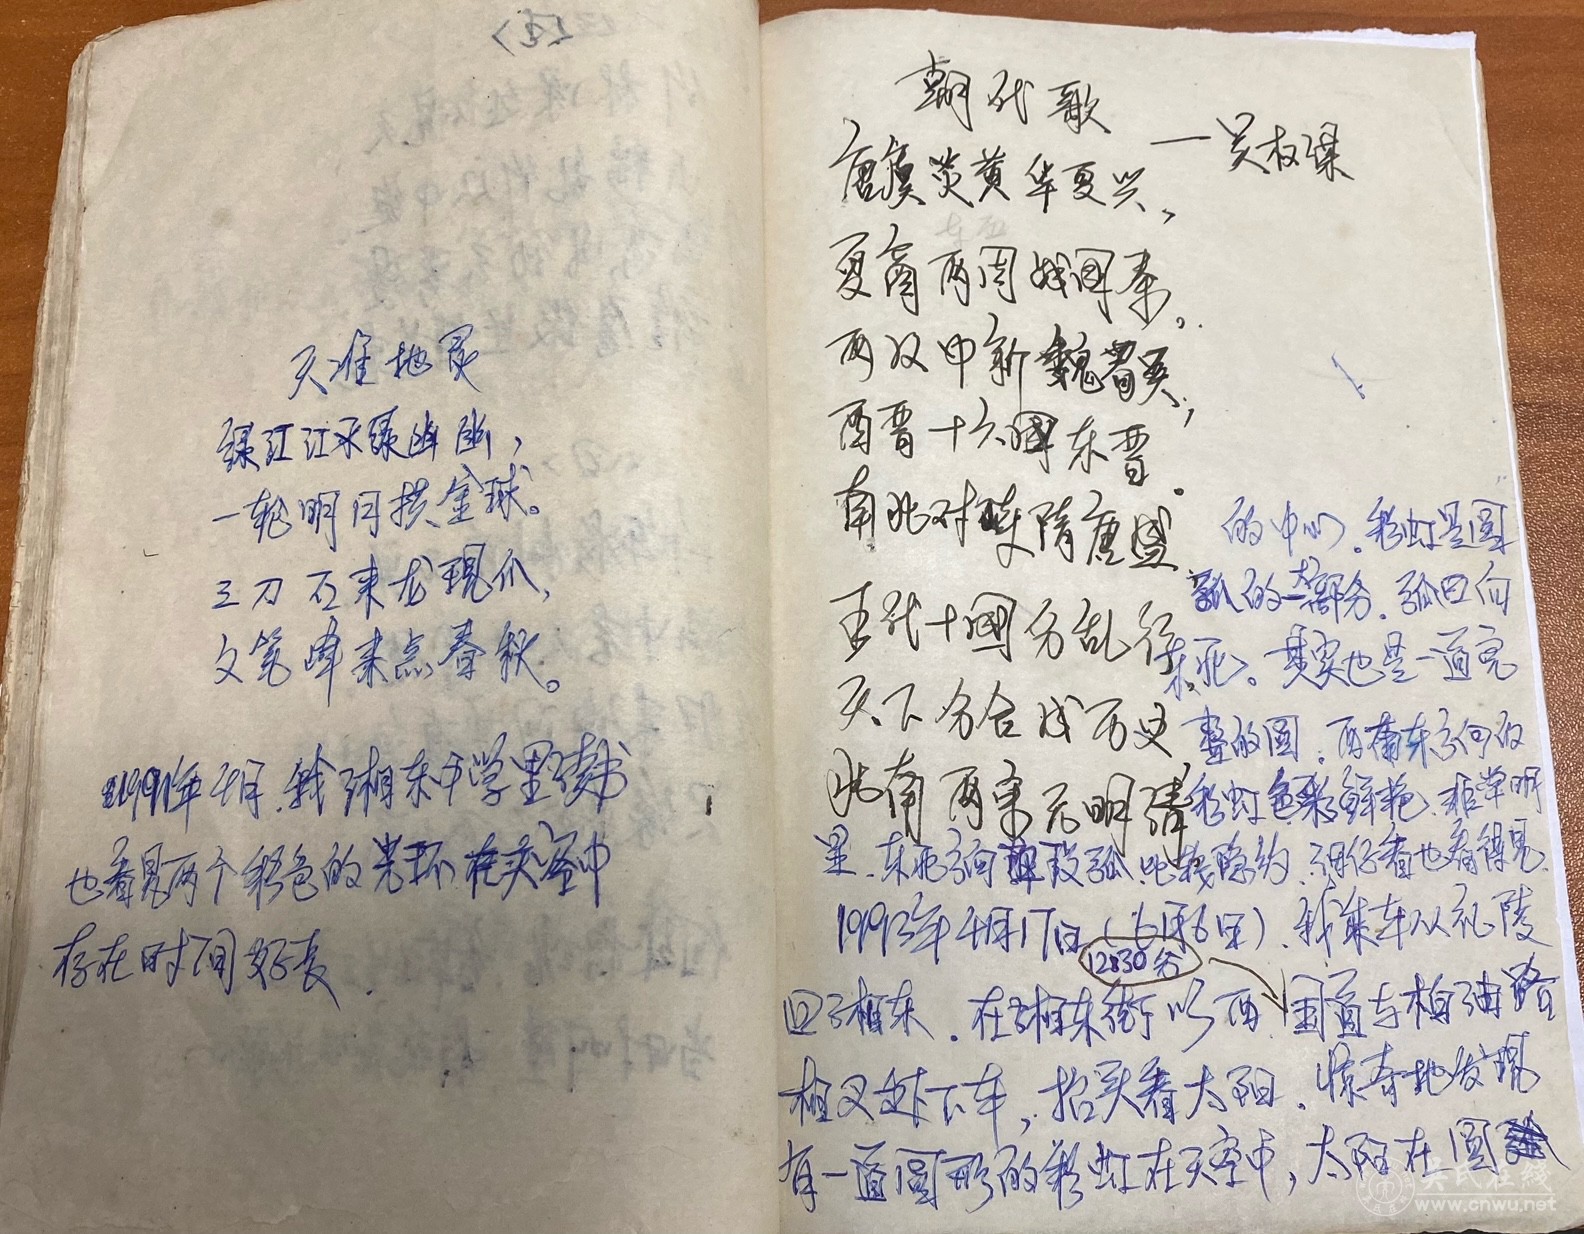 天准地灵
绿江江水绿幽幽，
一轮明月拱金球。
三刀石来龙现爪，
文笔峰来点春秋。
1991年4月.我湘东中学里读书
也看见两个彩色的光环在天空中
存在时间好长.
朝代歌
——吴权深
唐虞炎黄华夏兴，
夏商两周战国秦，
两汉中新魏蜀吴，
西晋十六國东晋。
南北对峙隋唐盛
五代十國分乱行
天下分合成历史
北南两宋元明清
的中心.彩虹是圆
弧的一大部分.弧口向
东北。其实也是一道完
整的圆.西南东方向的
彩虹色彩鲜艳.非常明
里.东北方向 段弧.比较隐约.细仔看也看得见.
1993年4月17日(6月6日).我乘车从礼陵
12:30分
回了湘东.在湘东街以西 国道与柏油路
相叉处下车,抬头看太阳.惊奇地发现
有一道圆形的彩虹在天空中,太阳在圆
吴氏在线
www.cnwu.net